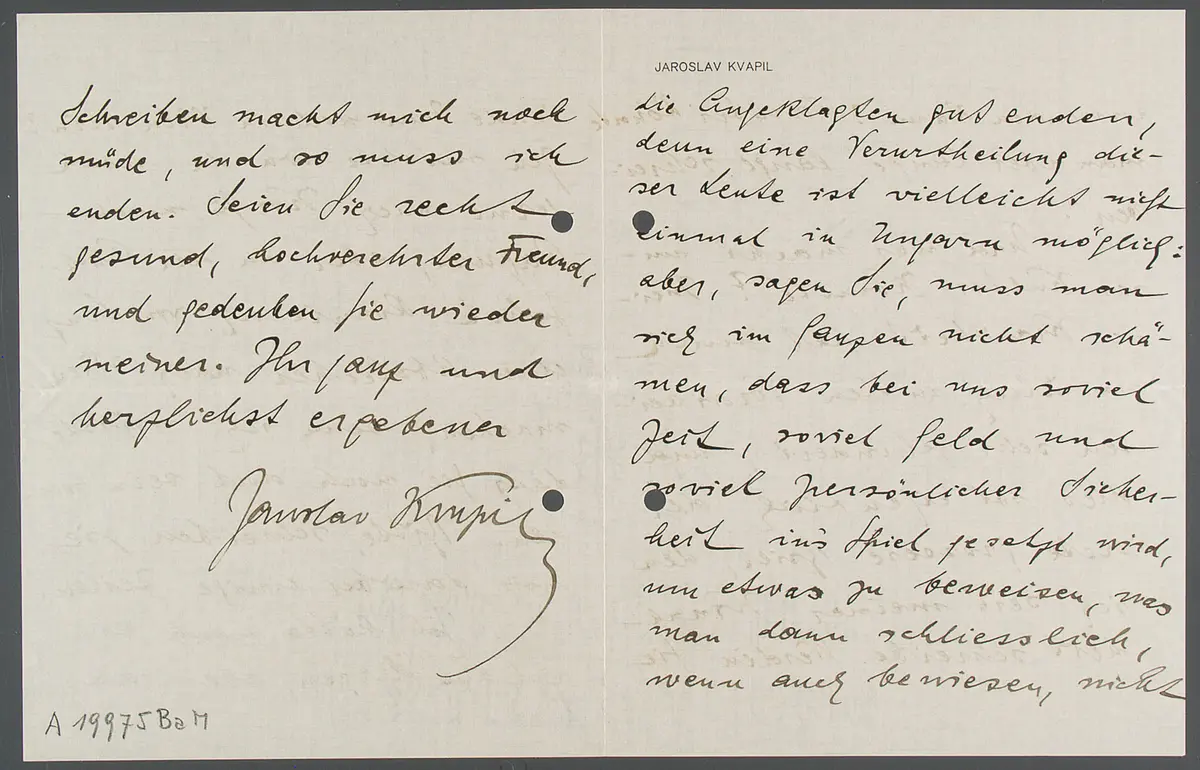 Schreiben macht mich noch
müde, und so muss ich
enden. Seien Sie recht
gesund, hochverehrter Freund,
und gedenken Sie wieder
meiner. Ihr ganz und
herzlichst ergebener
Jaroslav Kvapil
A 19975 BaM
JAROSLAV KVAPIL
die Angeklagten gut enden,
denn eine Verurtheilung die-
ser Leute ist vielleicht nicht
einmal in Ungarn möglich:
aber, sagen Sie, muss man
sich im Ganzen nicht schä-
men, dass bei uns soviel
Zeit, soviel Geld und
soviel persönlicher Sicher-
heit in's Spiel gesetzt wird,
um etwas zu beweisen, was
man dann schliesslich,
wenn auch bewiesen, nicht